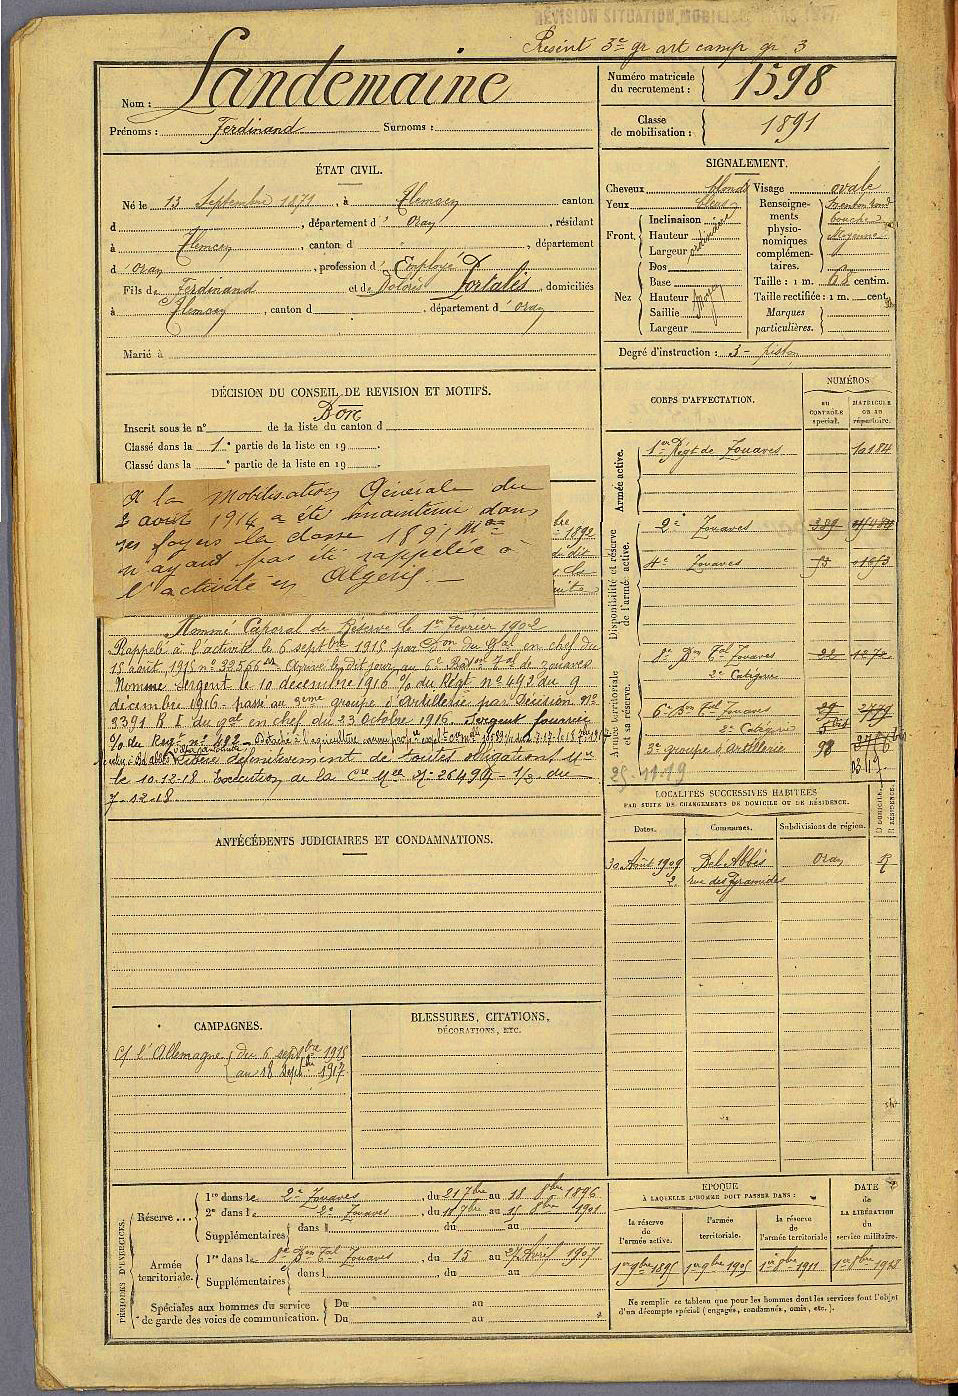 REVISION SITUATION MOBILIS
Nom : Landemaine
Prénoms : Ferdinand Surnoms :
Numéro matricule du recrutement : 1598
Classe de mobilisation : 1891
ÉTAT CIVIL.
Né le 13 Septembre 1871, à Tlemcen canton
d , département d' Oran, résidant
à Tlemcen, canton d " , département
d' Oran, profession d' Employé
Fils de Ferdinand et de Dolorès Portalès domiciliés
à Tlemcen, canton d , département d' Oran
Marié à
SIGNALEMENT.
Cheveux blonds Visage ovale
Yeux bleus
Front. Inclinaison
Hauteur ordinaire
Largeur
Nez Dos
Base
Hauteur Moyen
Saillie
Largeur
Renseignements physionomiques complémentaires. Menton rond
bouche
Moyenne
Taille : 1 m. centim.
Taille rectifiée : 1 m. cent.
Marques particulières.
Degré d'instruction : 3
DÉCISION DU CONSEIL DE REVISION ET MOTIFS.
Bon
Inscrit sous le n° de la liste du canton d
Classé dans la 1e partie de la liste en 19 .
Classé dans la e partie de la liste en 19 .
A la Mobilisation Générale du
2 août 1914 a été maintenu dans
ses foyers la classe 1891 Mon
n'ayant pas été rappelée à
l'activité en Algérie.
1892
Nommé Caporal de Réserve le 1er Février 1902
Rappelé à l'activité le 6 septbre 1915 par Don du Gal en chef du
15 août 1915 n° Arrivé le dit jour au 6e Baton Tal de zouaves
Nommé Sergent le 10 décembre 1916 % du Régt n° 492 du 9
décembre 1916 - passé au 3eme groupe d'Artillerie par Décision n°
3391 R I du gal en chef du 23 Octobre 1916. Sergent fourrier
% du Regt n° 482 - Détaché à l'agriculture
Libéré définitivement de toutes obligations Mres
le 10.12.18. Exécution de la Cre Mlle N° 26499 - 1/2 du
7-12-18
CORPS D'AFFECTATION.
NUMÉROS
au contrôle spécial.
MATRICULE ou au répertoire.
Armée active.
1er Régt de Zouaves 10184
Disponibilité et réserve de l'armée active.
2e Zouaves 389
4e Zouaves 1653
Armée territoriale et sa réserve.
8e Bon Tal Zouaves 22 1272
2e Catégorie
6e Bon Tal Zouaves 2779
2e Catégorie
3e groupe d'Artillerie 98
25-11-19
LOCALITÉS SUCCESSIVES HABITÉES
PAR SUITE DE CHANGEMENTS DE DOMICILE OU DE RÉSIDENCE.
Dates. Communes. Subdivisions de région. D DOMICILE. R RÉSIDENCE.
30 Août 1909 Bel Abbès Oran R
2 rue des Pyramides
ANTÉCÉDENTS JUDICIAIRES ET CONDAMNATIONS.
CAMPAGNES.
C/ l'Allemagne du 6 septbre 1915
au 18 Septbre 1917
BLESSURES, CITATIONS,
DÉCORATIONS, ETC.
PÉRIODES D'EXERCICES.
Réserve ... 1re dans le 2e Zouaves, du 21 7bre au 18 8bre 1896
2e dans le 2e Zouaves, du 18 7bre au 15 8bre 1901
Supplémentaires dans l du au
du au
Armée territoriale. 1re dans le 8e Bon Tal Zouaves, du 15 au 27 Avril 1907
Supplémentaires dans l du au
Spéciales aux hommes du service
de garde des voies de communication. Du au
Du au
EPOQUE
A LAQUELLE L'HOMME DOIT PASSER DANS :
la réserve de l'armée active.
l'armée territoriale.
la réserve de l'armée territoriale
DATE de LA LIBÉRATION du service militaire.
1er 9bre 1895 1er 9bre 1905 1er 8bre 1911 1er 8bre 1918
Ne remplir ce tableau que pour les hommes dont les services font l'objet
d'un décompte spécial (engagés, condamnés, omis, etc.).